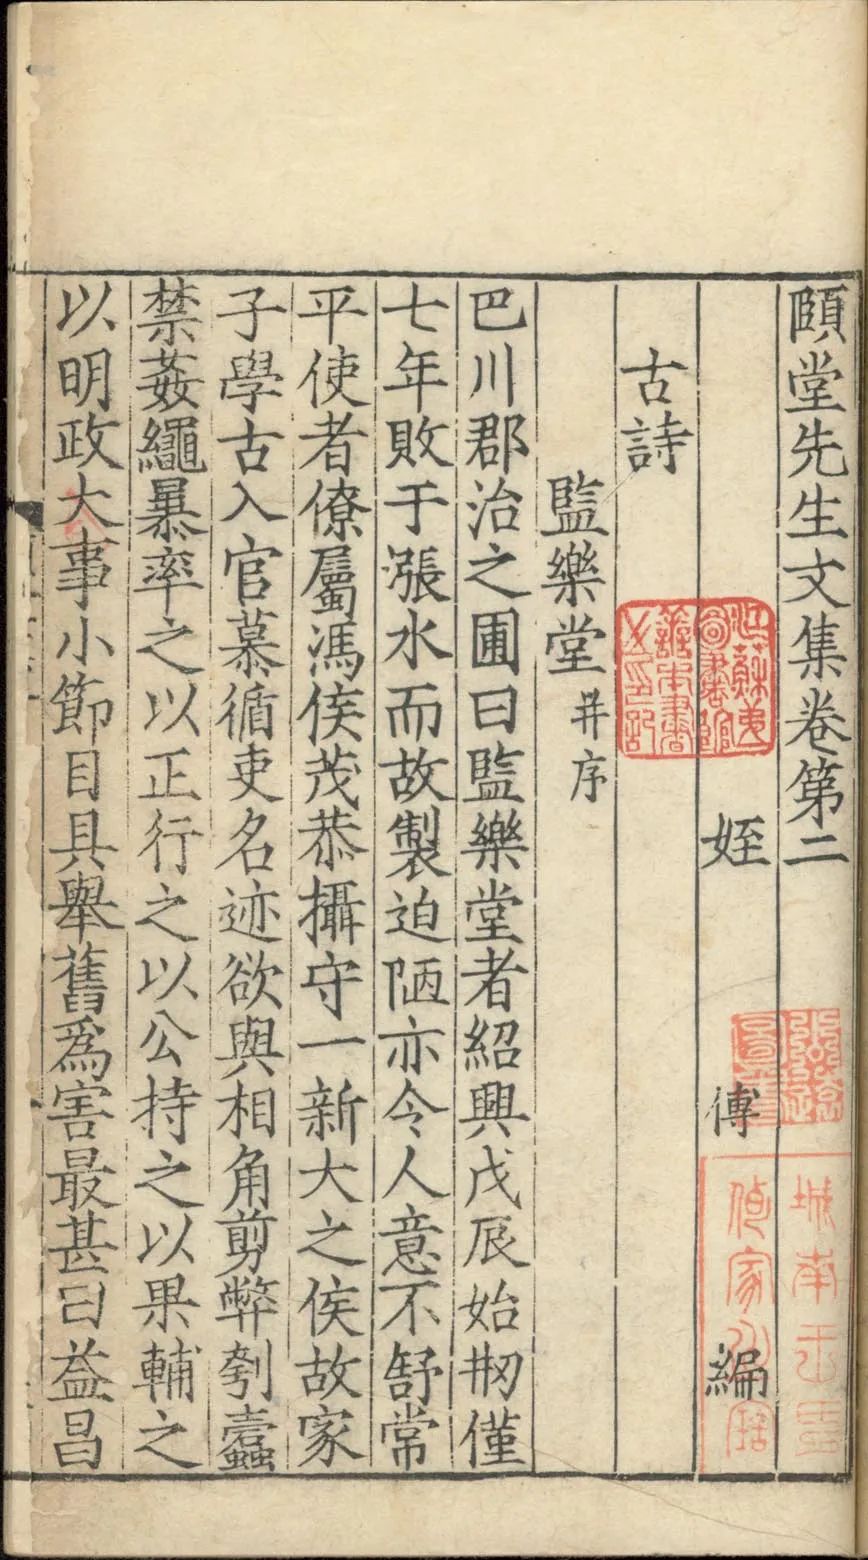 頤堂先生文集卷第二
姪 傳 編
古詩
監樂堂 并序
巴川郡治之圃曰監樂堂者紹興戊辰始剏僅
七年敗于漲水而故製迫陋亦令人意不舒常
平使者僚屬馮侯茂恭攝守一新大之侯故家
子學古入官慕循吏名迹欲與相角剪弊刳蠹
禁姦繩暴率之以正行之以公持之以果輔之
以明政大事小節目具舉舊為害最甚曰益昌